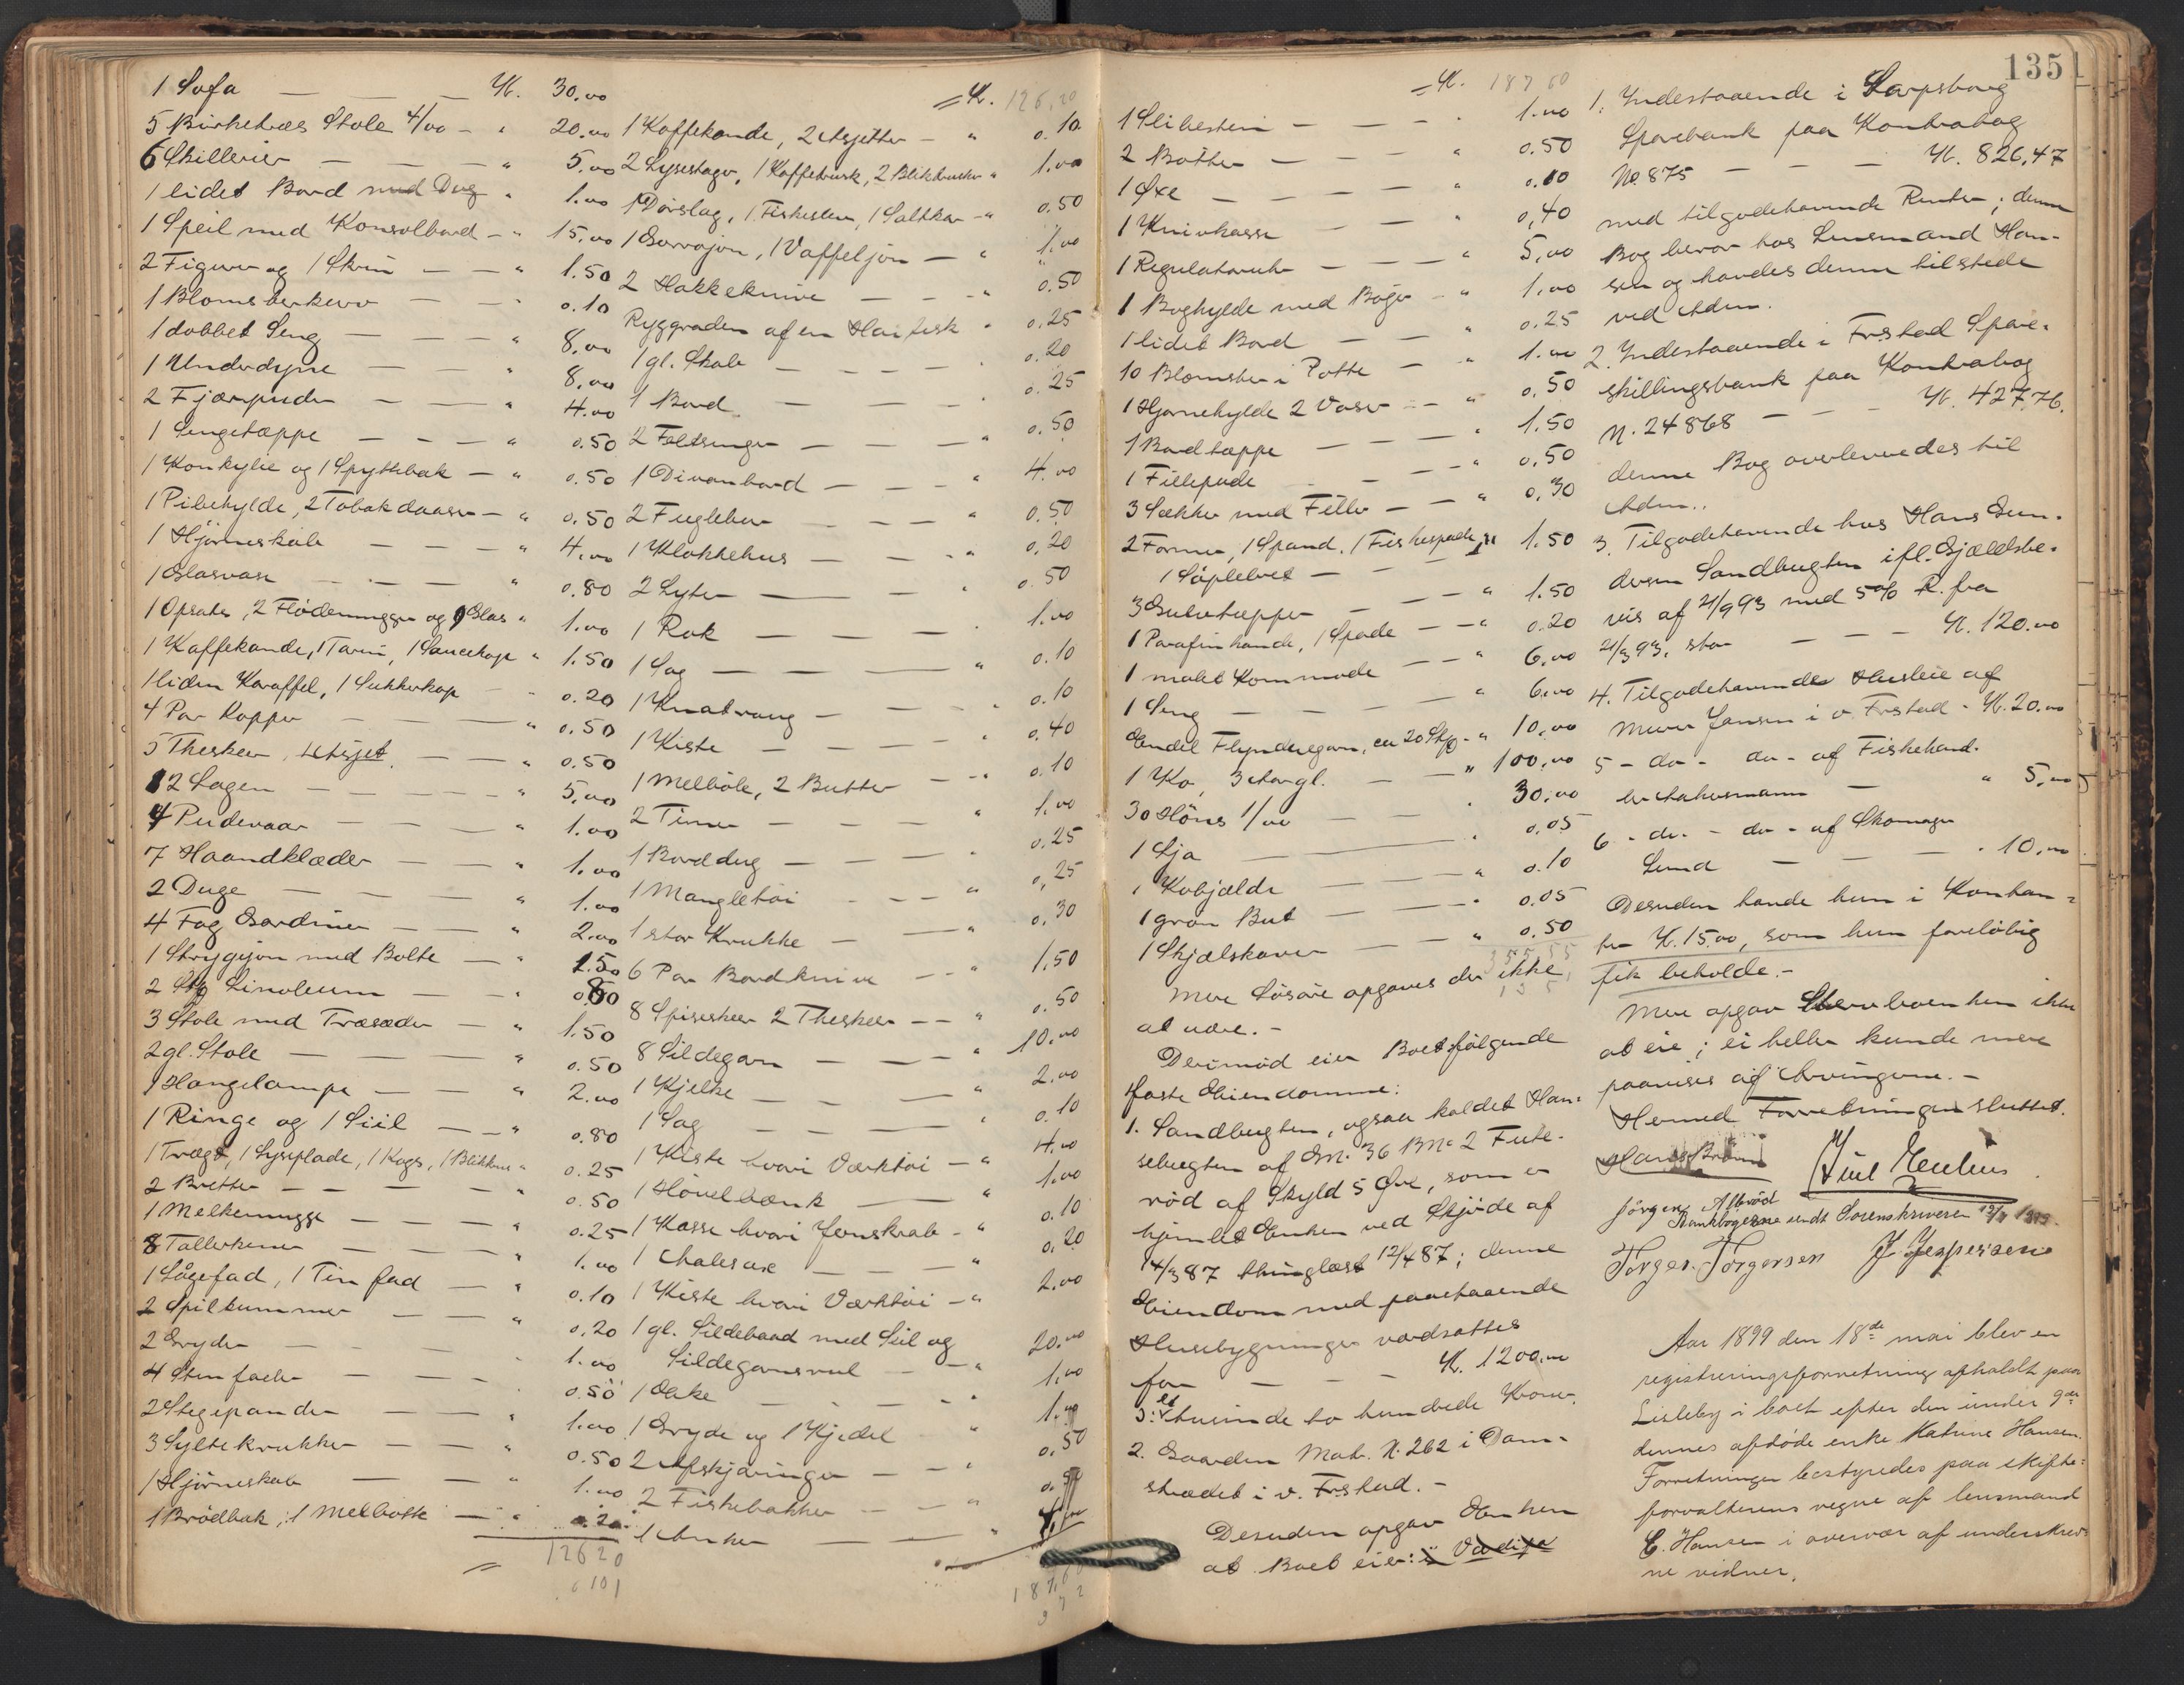 1 Sofa — — — Kr. 30.00
5 Birketræs Stole 4/00 — " 20.00
6 Skillerier — — — " 5.00
1 lidet Bord med Dug " 1.00
1 Speil med Konsolbord — " 15.00
2 Figurer og 1 Skrin — — " 1.50
1 Blomsterkurv — — " 0.10
1 dobbet Seng — — " 8.00
1 Underdyne — — " 8.00
2 Fjærpuder — — " 4.00
1 Sengetæppe — — — " 0.50
1 Konkylie og 1 Spyttebak — " 0.50
1 Pibehylde, 2 Tobakdaaser — " 0.50
1 Hjörneskab — — — " 4.00
1 Glasvase — — — " 0.80
1 Opsats, 2 Flödemugger og 9 Glas " 1.00
1 Kaffekande, 1 Tarin, 1 Saucekop " 1.50
1 liden Karaffel, 1 Sukkerkop — " 0.20
4 Par Kopper — — — " 0.50
5 Theskeer, 4 Asjet. — — " 0.50
12 Lagen — — — " 5.00
4 Pudevaar — — — " 1.00
7 Haandklæder — — " 1.00
2 Duge — — — " 1.00
4 Fag Gardiner — — " 2.00
1 Strygejern med Bolte — " 1.50
2 Stk Linoleum — — " 0.80
3 Stole med Træsæder — " 1.50
2 gl. Stole — — — " 0.50
1 Hangelampe — — " 2.00
1 Ringe og 1 Siil — — " 0.80
1 Tragt, 1 Lyseplade, 1 Kogs, 1 Blikkum " 0.25
2 Bretter — — — — " 0.50
1 Melkemugge — — — " 0.25
8 Tallerkener — — — " 1.00
1 Lågefad, 1 Tin fad — — " 0.10
2 Spilkummer — — " 0.20
2 Gryder — — — — " 1.00
4 Stenfade — — — " 0.50
2 Stegepander — — " 1.00
3 Syltekrukker — — " 0.50
1 Hjörneskab — — " 1.00
1 Brödbak, 1 Melbötte — " 0.20
= 12620
= Kr. 126,20
1 Kaffekande, 2 Asjetter — " 0.10
2 Lysestager, 1 Kaffebrusk, 2 Blikbrusker " 1.00
1 Dörslag, 1 Fiskesten, 1 Saltkar — " 0.50
1 Gorrojern, 1 Vaffeljern — " 1.00
2 Hakkeknive — — — " 0.50
Ryggraden af en Haifisk " 0.25
1 gl. Skab — — — — " 0.20
1 Bord — — — — " 0.25
2 Feltsenge — — — " 0.50
1 Divanbord — — — " 4.00
2 Fuglebur — — — " 0.50
1 Klokkehus — — — " 0.20
2 Lyter — — — " 0.50
1 Rok — — — " 1.00
1 Sag — — — — " 0.10
1 Knatvang — — — " 0.10
1 Kiste — — — " 0.40
1 Melböle, 2 Butter — — " 0.10
2 Tiner — — — " 1.00
1 Borddug — — — " 0.25
1 Mangletöi — — — " 0,25
1 stor Krukke — — " 0.30
6 Par Bordknive — — " 1.50
8 Spiseskeer 2 Theskeer — — " 0.50
8 Sildegarn — — — " 10.00
1 Kjelke — — — " 2.00
1 Sag — — — — " 0.10
1 Kiste hvori Værktöi — " 4.00
1 Hövelbænk — — " 1.00
1 Kasse hvori Jernskrab — " 0.10
1 Malesaxe — — — " 0.20
1 Kiste hvori Værktöi — " 2.00
1 gl. Sildebaad med Seil og
Sildegarnsrul — — " 20.00
1 Oake — — — — " 1.00
1 Gryde og 1 Kjedel " 1.00
2 Afskjæringer — — " 0.50
2 Fiskebakker — — " 0.50
1 Anker — — "
187,60
= Kr. 187 60
1 Slibesten — — — " 1.00
2 Bötter — — — " 0.50
1 Öxe — — — — " 0.10
1 Knivkasse — — — " 0,40
1 Regulatoruhr — — — " 5,00
1 Boghylde med Böger — " 1.00
1 lidet Bord — — — " 0.25
10 Blomster i Potte — — " 1.00
1 Hjørnehylde 2 Vaser — — " 0.50
1 Bordtæppe — — — " 1.50
1 Fillepude — — — " 0.50
3 Sækker med Filler — — " 0.30
2 Former, 1 Spand, 1 Fiskespade, "
1 Söplebret — — — 1.50
3 Gulvtæpper — — — " 1.50
1 Parafinkande, 1 Spade — — " 0.20
1 malet Kommode — — " 6.00
1 Seng — — — — " 6.00
Endel Flyndregarn, ca 20 Stk — " 10.00
1 Ko, 3 Aar gl. — — " 100,00
30 Höns 1/00 — — " 30,00
1 Lja — — — " 0.05
1 Kobjælde — — — " 0.10
1 grön But — — — " 0.05
1 Skjælskaver — — " 0.50
355,55
Mere Lösöre opgaves der ikke
at være. —
Derimod eier Boet følgende
faste Eiendomme:
1. Sandbugten, ogsaa kaldet Han-
sebugten af G.No. 36 B.No. 2 Fute-
röd af Skyld 5 Øre, som er
hjemlet Enken ved Skjöde af
14/3 87 thinglæst 12/4 87; denne
Eiendom med paastaaende
Husebygninger værdsattes
for — — — Kr. 1200.00
ɔ: et tusinde to hundrede Kroner.
2. Gaarden Matr. N. 262 i Dam-
strædet i v. Fr.stad. —
Desuden opgav Enken
at Boet eier: i Værdipa
135
1. Indestaaende i Sarpsborg
Sparebank paa Kontrabog
No. 875 — — — Kr. 826,47
med tilgodehavende Renter; denne
Bog beror hos Lensmand Han-
sen og havdes denne tilstede
ved Adm.
2. Indestaaende i Fr.stad Spare-
skillingsbank paa Kontrabog
N. 24868 — — — Kr. 427,76.
denne Bog overleveredes til
Adm..
3. Tilgodehavende hos Hans Gun-
dersen Sandbugten ifl. Gjældsbe-
vis af 21/9 93 med 5% R. fra
21/3 93, stor — — — Kr. 120.00
4. Tilgodehavende Husleie af
Murer Jansen i v. Fr.stad — Kr. 20.00
5 — do — do — af Fiskehand-
ler Aakermann — " 5,00
6 — do — do — af Skomager
Lund — — — " 10,00
Desuden havde hun i Kontan-
ter Kr. 15,00, som hun foreløbig
fik beholde. —
Mere opgav Stervboenken ikke
at eie; ei heller kunde mere
paavises af Arvingerne. —
Hermed Forretningen sluttet.
Hans Juel Eenhus
Jörgen Alleröd
Bankbøgerne sendt Sorenskriveren 12/4 1899.
Torger Torgersen J. Jespersen
Aar 1899 den 18de mai blev en
registreringsforretning afholdt paa
Lisleby i boet efter den under 9de
dennes afdöde enke Katrine Hansen.
Forretningen bestyredes paa skifte-
forvalterens vegne af lensmand
C. Hansen i overvær af underskrev-
ne vidner.